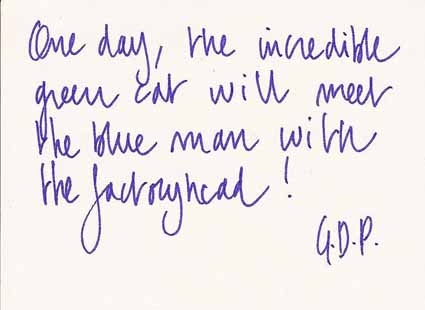 One day, the incredible
green cat will meet
the blue man with
the factoryhead!
G.D.P.